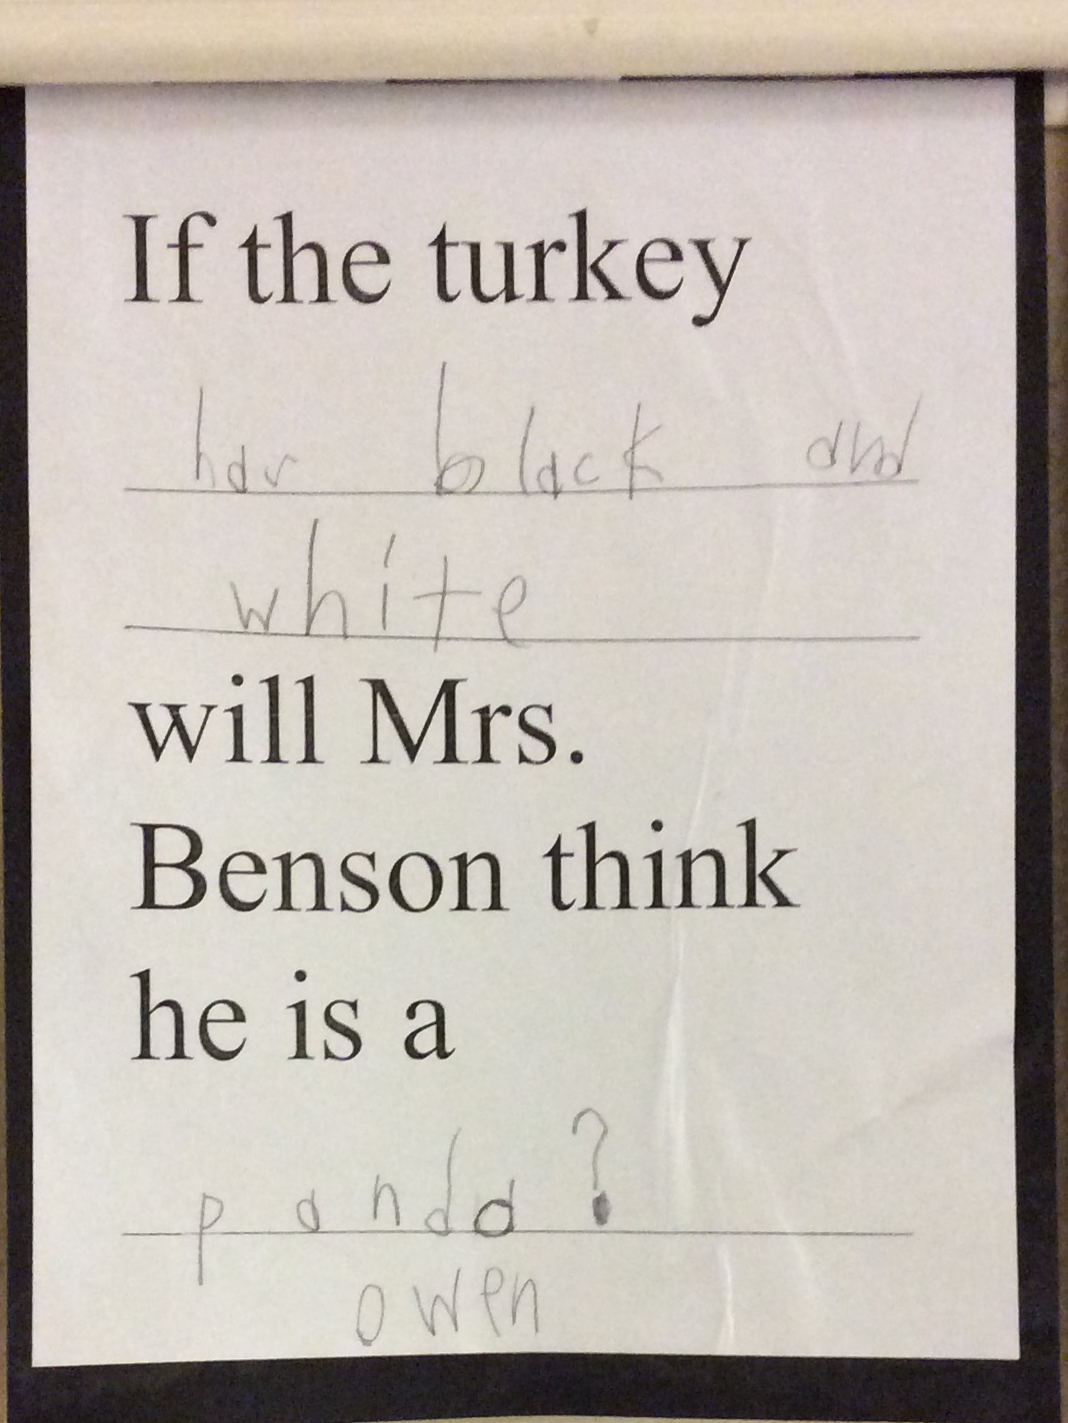 If the turkey
has black and
white
will Mrs.
Benson think
he is a
panda?
owen